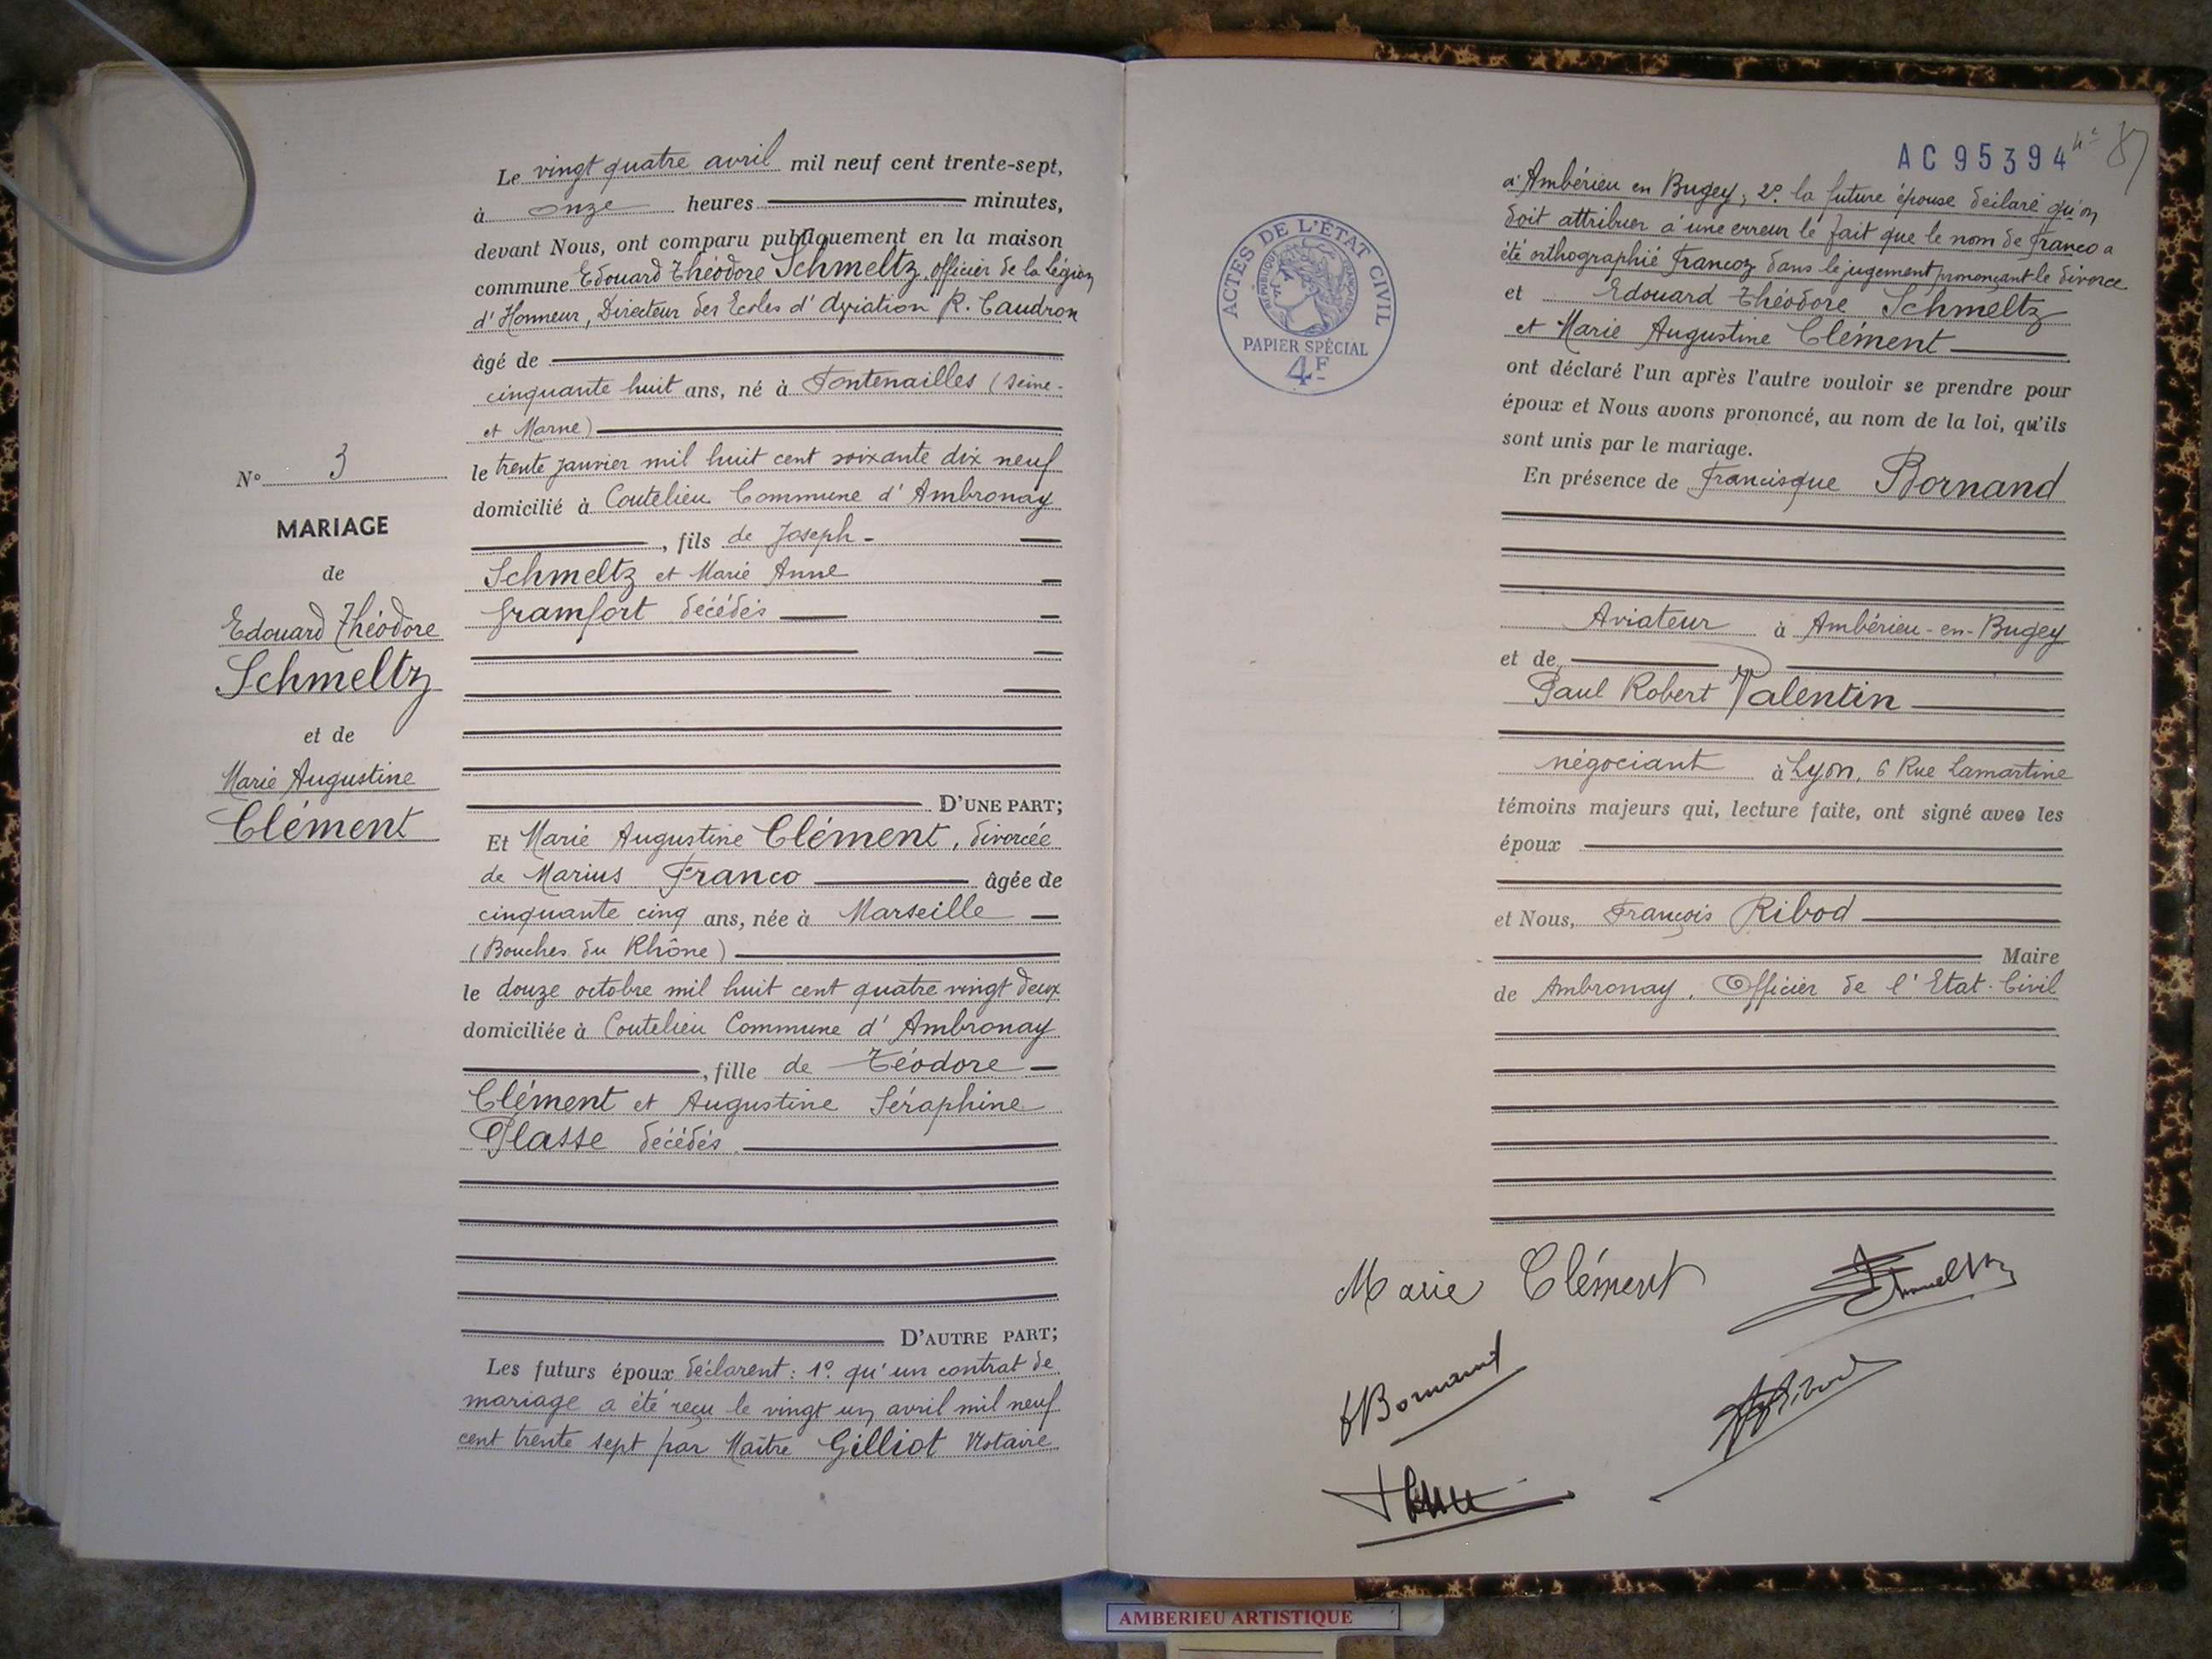 N° 3
MARIAGE
de
Edouard Théodore
Schmeltz
et de
Marie Augustine
Clément
Le vingt quatre avril mil neuf cent trente-sept,
à onze heures minutes,
devant Nous, ont comparu publiquement en la maison
commune Edouard Théodore Schmeltz, officier de la Légion
d'Honneur, Directeur des Ecoles d'Aviation R. Caudron
âgé de
cinquante huit ans, né à Fontenailles (Seine-
et Marne)
le trente janvier mil huit cent soixante dix neuf
domicilié à Coutelieu Commune d'Ambronay
, fils de Joseph -
Schmeltz et Marie Anne
Gramfort décédés
D'UNE PART;
Et Marie Augustine Clément, divorcée
de Marius Franco âgée de
cinquante cinq ans, née à Marseille
(Bouches du Rhône)
le douze octobre mil huit cent quatre vingt deux
domiciliée à Coutelieu Commune d'Ambronay
, fille de Téodore
Clément et Augustine Séraphine
Plasse décédés
D'AUTRE PART;
Les futurs époux déclarent : 1° qu'un contrat de
mariage a été reçu le vingt un avril mil neuf
cent trente sept par Maître Gilliot Notaire
AC 95394
ACTES DE L'ÉTAT CIVIL
RÉPUBLIQUE FRANÇAISE
PAPIER SPÉCIAL
4F
à Ambérieu en Bugey ; 2° la future épouse déclare qu'on
doit attribuer à une erreur le fait que le nom de Franco a
été orthographié Francoz dans le jugement prononçant le divorce
et Edouard Théodore Schmeltz
et Marie Augustine Clément
ont déclaré l'un après l'autre vouloir se prendre pour
époux et Nous avons prononcé, au nom de la loi, qu'ils
sont unis par le mariage.
En présence de Francisque Bornand
Aviateur à Ambérieu-en-Bugey
et de
Paul Robert Valentin
négociant à Lyon, 6 Rue Lamartine
témoins majeurs qui, lecture faite, ont signé avec les
époux
et Nous, François Ribod
Maire
de Ambronay, Officier de l'Etat-Civil
Marie Clément
Schmeltz
FBornand
Ribod
AMBERIEU ARTISTIQUE